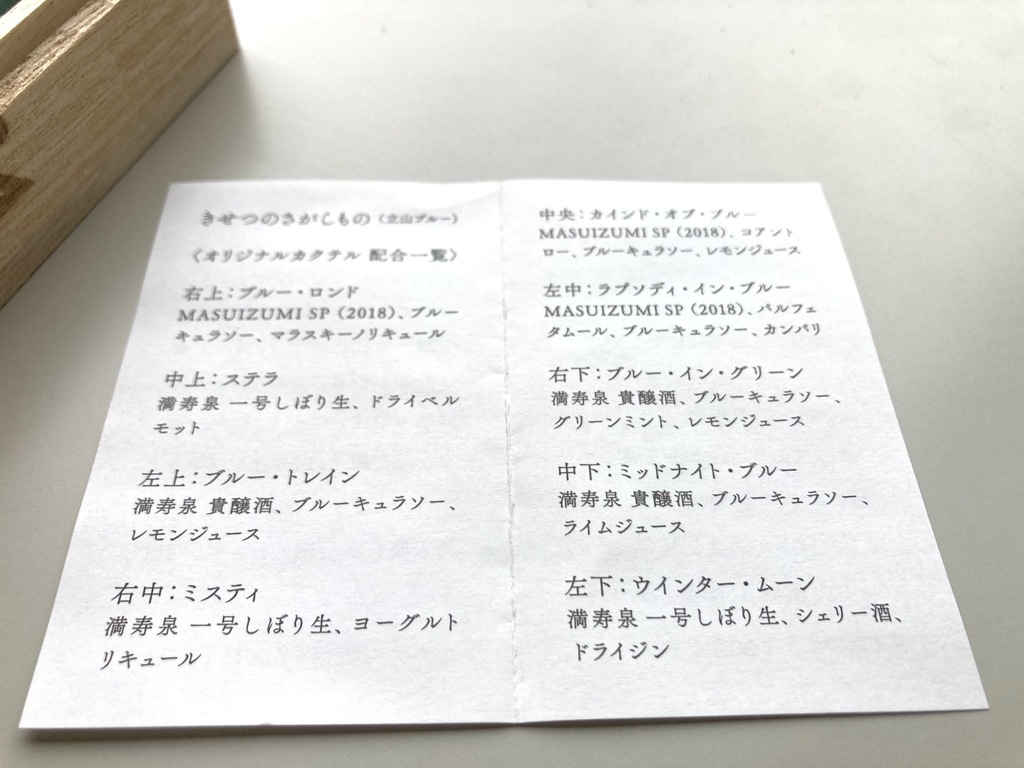 きせつのさがしもの（立山ブルー）
〈オリジナルカクテル 配合一覧〉
右上：ブルー・ロンド
MASUIZUMI SP（2018）、ブルー
キュラソー、マラスキーノリキュール
中上：ステラ
満寿泉 一号しぼり生、ドライベル
モット
左上：ブルー・トレイン
満寿泉 貴醸酒、ブルーキュラソー、
レモンジュース
右中：ミスティ
満寿泉 一号しぼり生、ヨーグルト
リキュール
中央：カインド・オブ・ブルー
MASUIZUMI SP（2018）、コアント
ロー、ブルーキュラソー、レモンジュース
左中：ラプソディ・イン・ブルー
MASUIZUMI SP（2018）、パルフェ
タムール、ブルーキュラソー、カンパリ
右下：ブルー・イン・グリーン
満寿泉 貴醸酒、ブルーキュラソー、
グリーンミント、レモンジュース
中下：ミッドナイト・ブルー
満寿泉 貴醸酒、ブルーキュラソー、
ライムジュース
左下：ウインター・ムーン
満寿泉 一号しぼり生、シェリー酒、
ドライジン